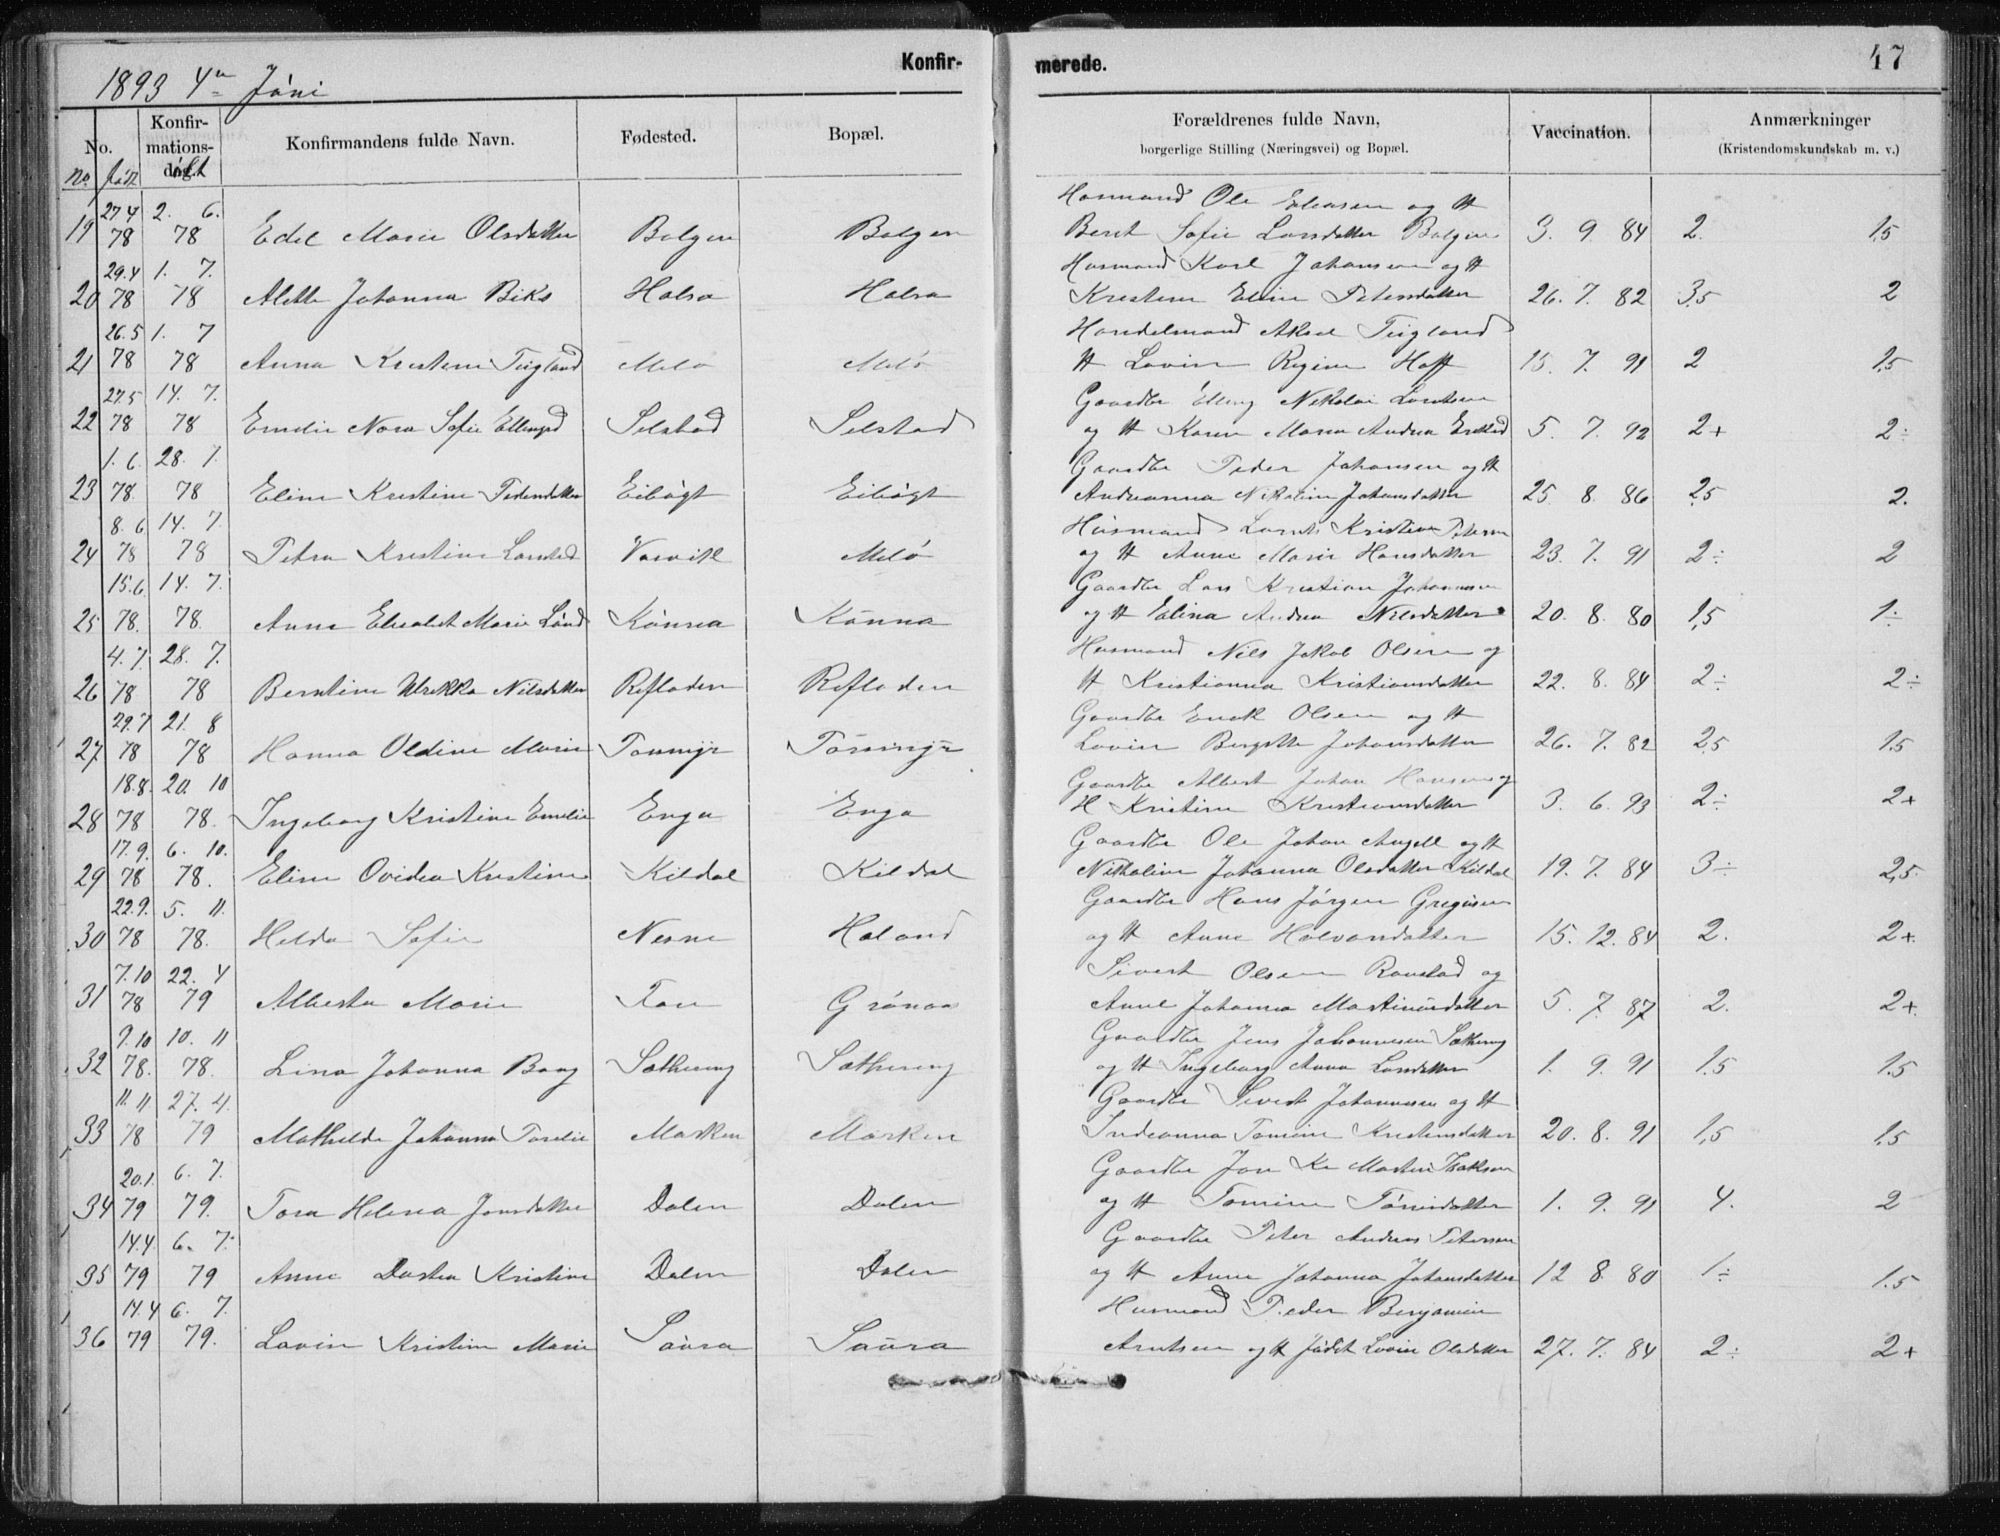 1893 4de Júni
Konfir-
merede.
47
No.
Konfir-
mations-
dag.
døbt
Konfirmandens fulde Navn.
Fødested.
Bopæl.
Forældrenes fulde Navn,
borgerlige Stilling (Næringsvei) og Bopæl.
Vaccination.
Anmærkninger
(Kristendomskundskab m. v.)
No. født
27.4 2. 6. Husmand Ole og H
19 78 78 Edel Marie Olsdatter Bolgen Bolgen Beret Sofie Larsdatter Bolgen 3. 9. 84 2. 1,5
29.4 1. 7. Husmand Karl Johansen og H
20 78 78 Alette Johanna Biks Halsa Halsa Kristine Eline Petersdatter 26. 7. 82 3,5 2
26.5 1. 7 Handelsmand Aksel
21 78 78 Anna Kristine Melø Melø H Lovise Regine Hoff 15. 7. 91 2 1,5
27.5 14. 7. Gaardbr Elling Nikolai
22 78 78 Emelie Nora Sofie Selstad Selstad og H Karen Maria Andrea 5. 7. 92 2+ 2÷
1. 6. 28. 7. Gaardbr Peder Johansen og H
23 78. 78 Eline Kristine Pedersdatter Eibógt Eibógt Andreanna Nikoline Johansdatter 25. 8. 86 2,5 2.
8. 6 14. 7. Húsmand Kristian Petersen
24 78 78 Petra Kristine Varvik Melø og H Anne Marie Hansdatter 23. 7. 91 2÷ 2
15.6 14. 7. Gaardbr Lars Kristian Johannesen
25 78. 78. Anne Elisabet Marie Lúnd Kúnna Kúnna og H Elina Andrea Nilsdatter 20. 8. 80 1,5 1÷
4. 7. 28. 7. Husmand Nils Jakob Olsen og
26 78 78 Berntine Ulrikka Nilsdatter Refladen Refladen H Kristianna Kristiansdatter 22. 8. 84 2÷ 2÷
29.7 21. 8 Gaardbr Olsen og H
27 78 78 Hanna Oldine Marie Lovise Bergitte Johansdatter 26. 7. 82 2,5 1.5
18.8. 20. 10 Gaardbr Albert Johan Hansen og
28 78 78. Ingeborg Kristine Emelie Enga Enga H Kristine Kristiansdatter 3. 6. 93 2÷ 2+
17.9. 6. 10. Gaardbr Ole Johan Angell og H
29 78 78. Eline Ovidea Kristine Kildal Kildal Nikoline Johanna Olsdatter Kildal 19. 7. 84 3÷ 2,5
22.9. 5. 11. Gaardbr Hans Jørgen
30 78 78. Helda Sofie Nesne Haland og H Anne Halvorsdatter 15. 12. 84 2. 2+.
7.10 22. 4 Sivert Olsen og
31 78 79 Alberta Marie Grønaa Anne Johanna Martinusdatter 5. 7. 87 2. 2+
9.10 10. 11 Gaardbr Jens Johannesen Sæthering
32 78. 78. Lina Johanna Baag Sæthering Sæthering og H Ingeborg Anna Larsdatter 1. 9. 91 1.5 1.5
11. 11 27. 4. Gaardbr Sivert Johannesen og H
33 78 79 Mathilde Johanna Torelie Marken Marken Indianna Tomine Kristensdatter 20. 8. 91 1,5 1,5
20.1. 6. 7. Gaardbr Jon Martin Isaksen
34 79 79. Tora Helena Jonsdatter Dalen Dalen og H Tomine 1. 9. 91 4. 2
14.4. 6. 7. Gaardbr Peter Andreas Petersen
35 79 79 Anne Dortea Kristine Dalen Dalen og H Anne Johanna Johansdatter 12 8. 80 1÷ 1.5
17.4 6. 7. Husmand Peder Benjamin
36 79 79. Lovise Kristine Marie Saúra Saúra Arntsen og H Júdit Lovise Olsdatter 27. 7. 84 2÷ 2+